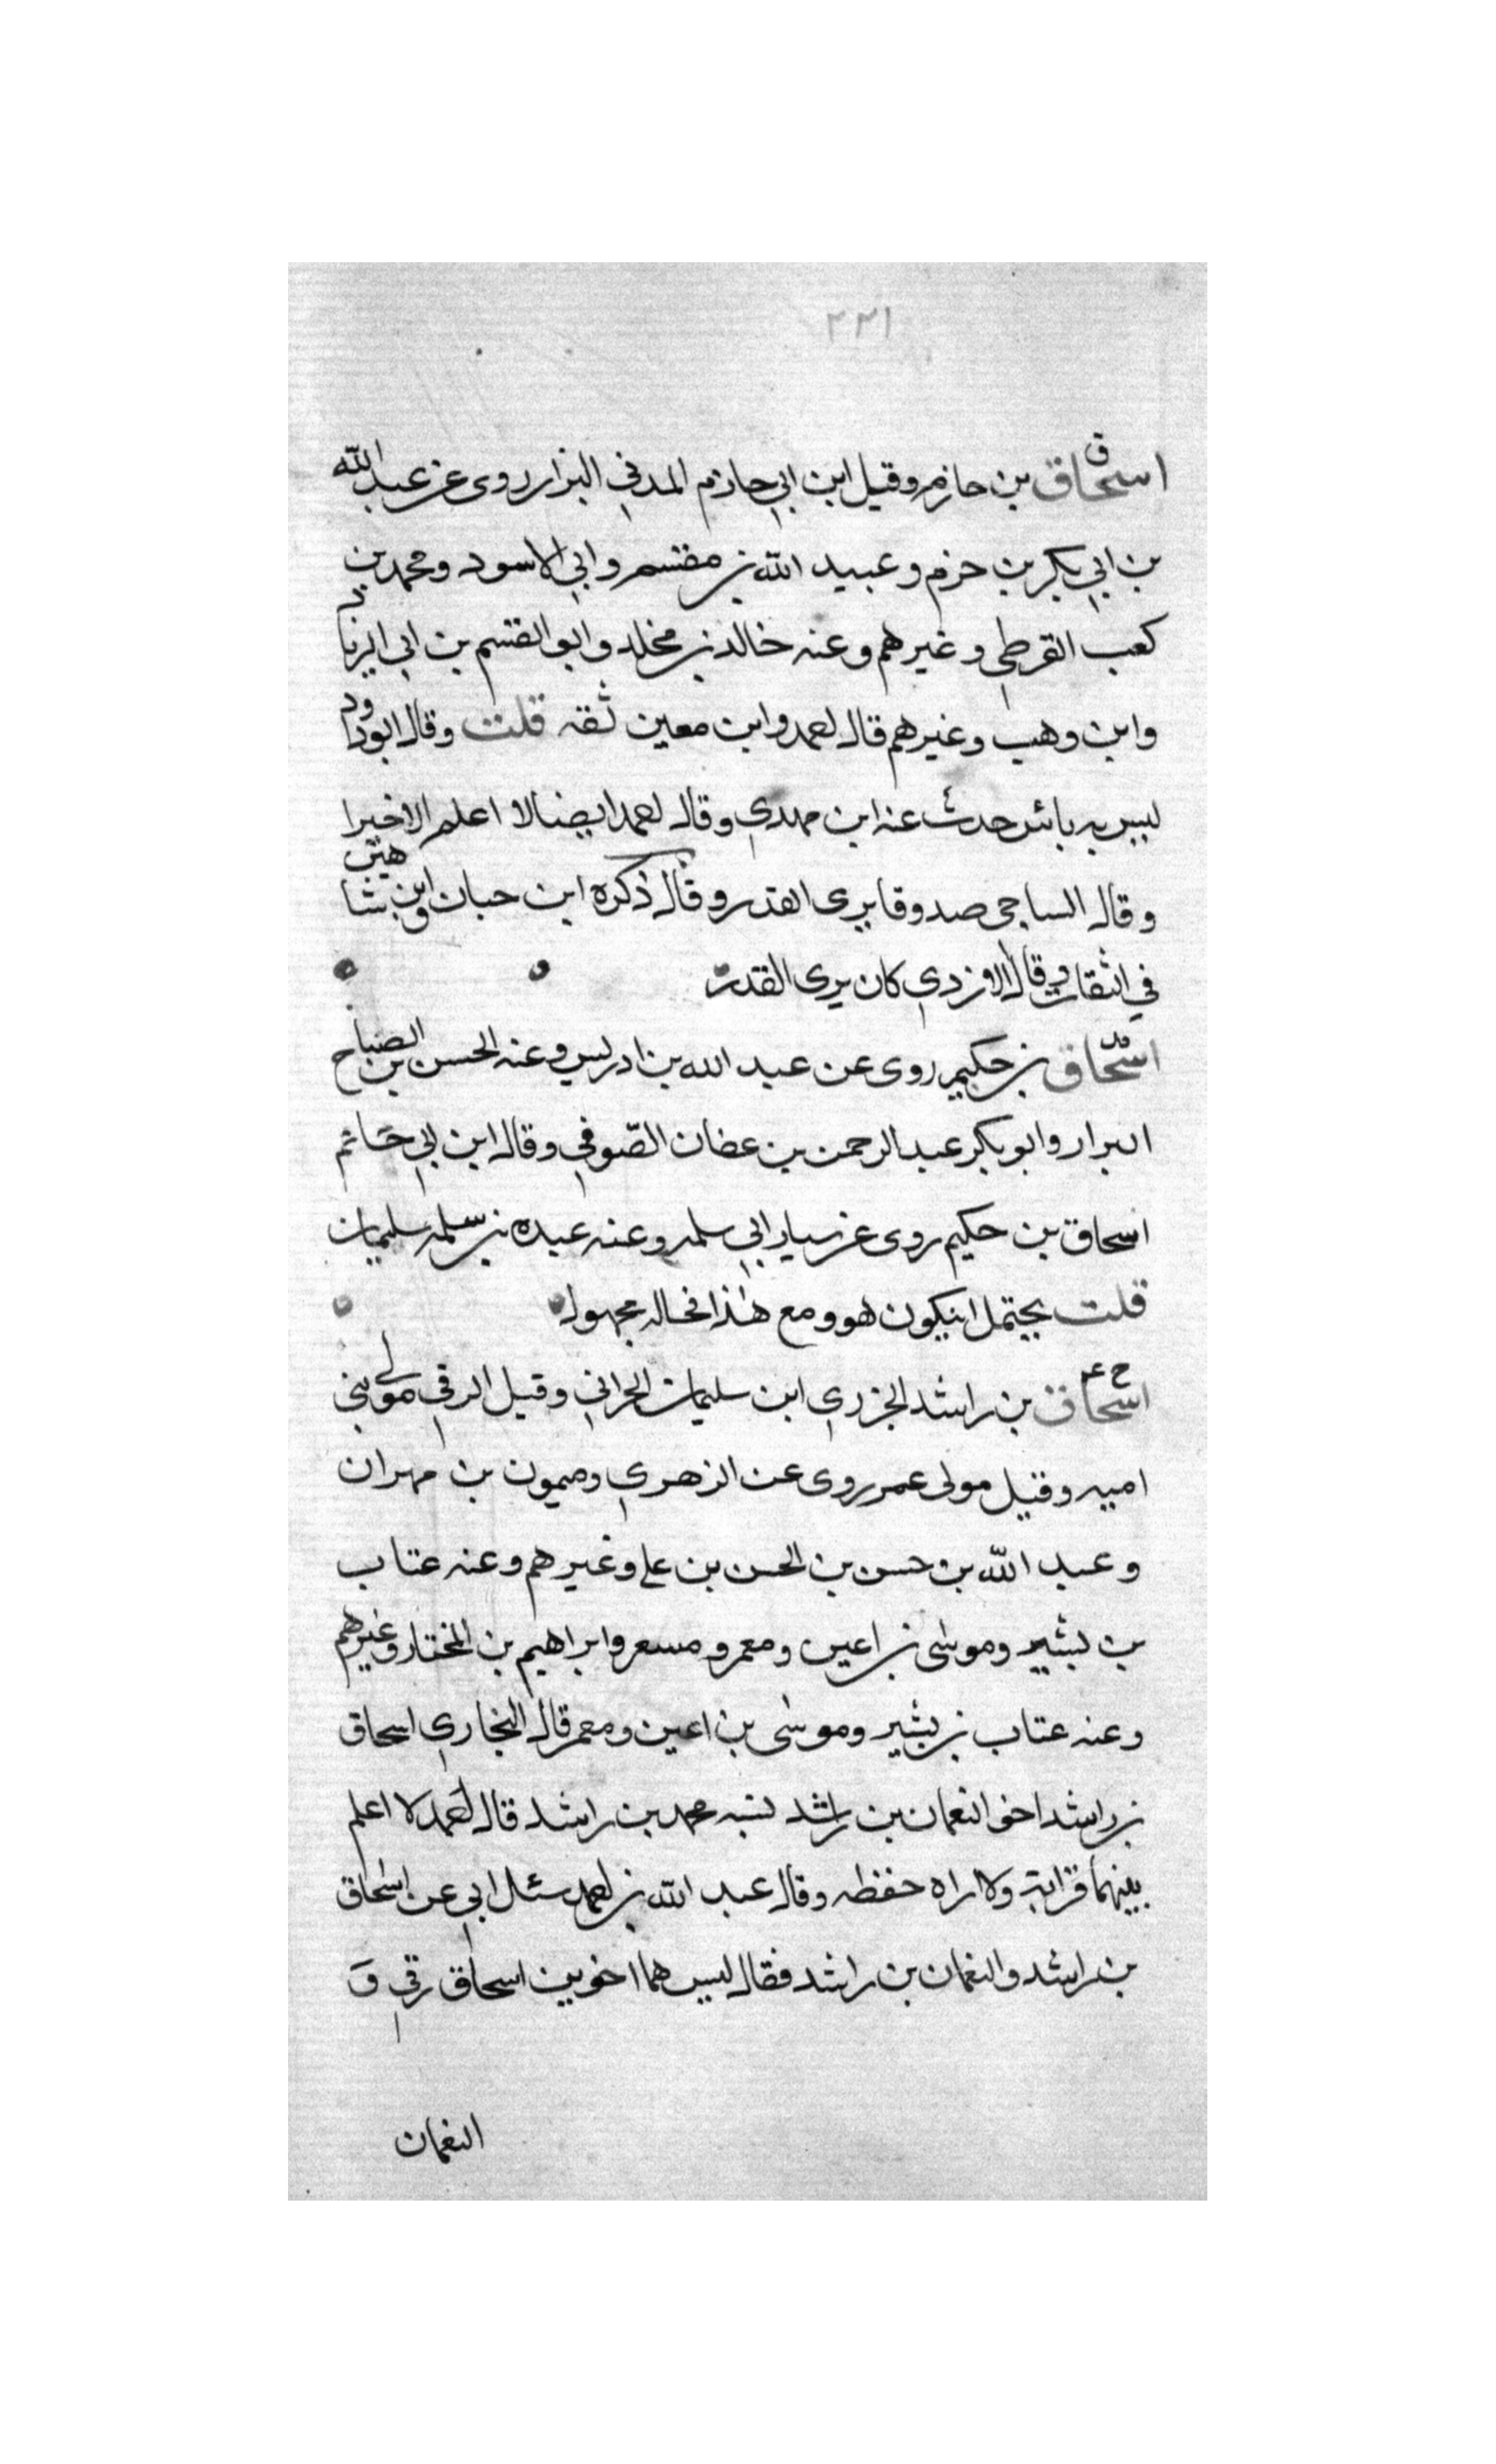 ٢٢١
ق
اسحاق بن حازم وقيل ابن ابي حازم المدني البزار روى عن عبد الله
بن ابي بكر بن حزم وعبيد الله بن مقسم وابي الاسود ومحمد بن
كعب القرظي وغيرهم وعنه خالد بن مخلد وابو القسم بن ابي الزناد
وابن وهب وغيرهم قال احمد وابن معين ثقه قلت وقال ابو داود
ليس به بائس حدث عنه ابن مهدي وقال احمد ايضا لا اعلم الا خيرا
وقال الساجي صدوقا يرى القدر وقال ذكره ابن حبان وابن شاهين
في الثقات وقال الازدي كان يرى القدر
اسحاق بن حكيم روى عن عبد الله بن ادريس وعنه الحسن بن الصباح
البزار وابو بكر عبد الرحمن بن عفان الصوفي وقال ابن ابي حاتم
اسحاق بن حكيم روى عن سيار ابي سلمه وعنه عبده بن سليمان
قلت يحتمل انيكون هو ومع هذا فحاله مجهول
خ عم
اسحاق بن راشد الجزري ابن سليمان الحراني وقيل الرقي مولى بني
اميه وقيل مولى عمر روى عن الزهري وميمون بن مهران
وعبد الله بن حسن بن الحسن بن علي وغيرهم وعنه عتاب
بن بشير وموسى بن اعين ومعمر ومسعر وابراهيم بن المختار وغيرهم
وعنه عتاب بن بشير وموسى بن اعين ومعمر قال البخاري اسحاق
بن راشد اخو النعمان بن راشد نسبه محمد بن راشد قال احمد لا اعلم
بينهما قرابة ولا اراه حفظه وقال عبد الله بن احمد سئل ابي عن اسحاق
بن راشد والنعمان بن راشد فقال ليس هما اخوين اسحاق رقي و
النعمان